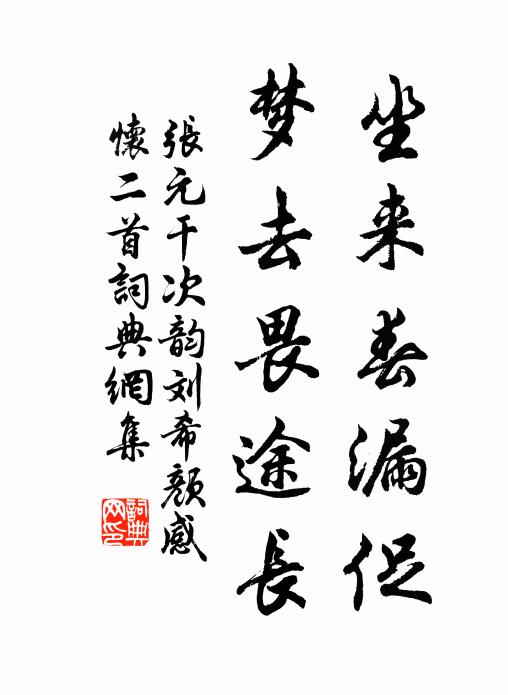 坐来春漏促
梦去畏途長
張元干次韵刘希颜感
懷二首詞典網集
詞典
网印